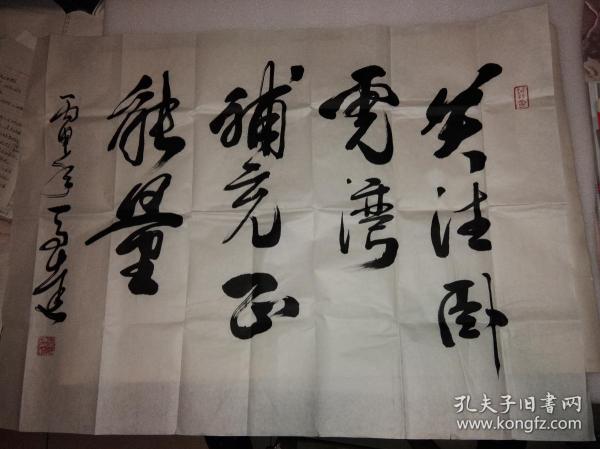 关注卧
云湾
补充正
能量
孔夫子旧书网
www.kongfz.com